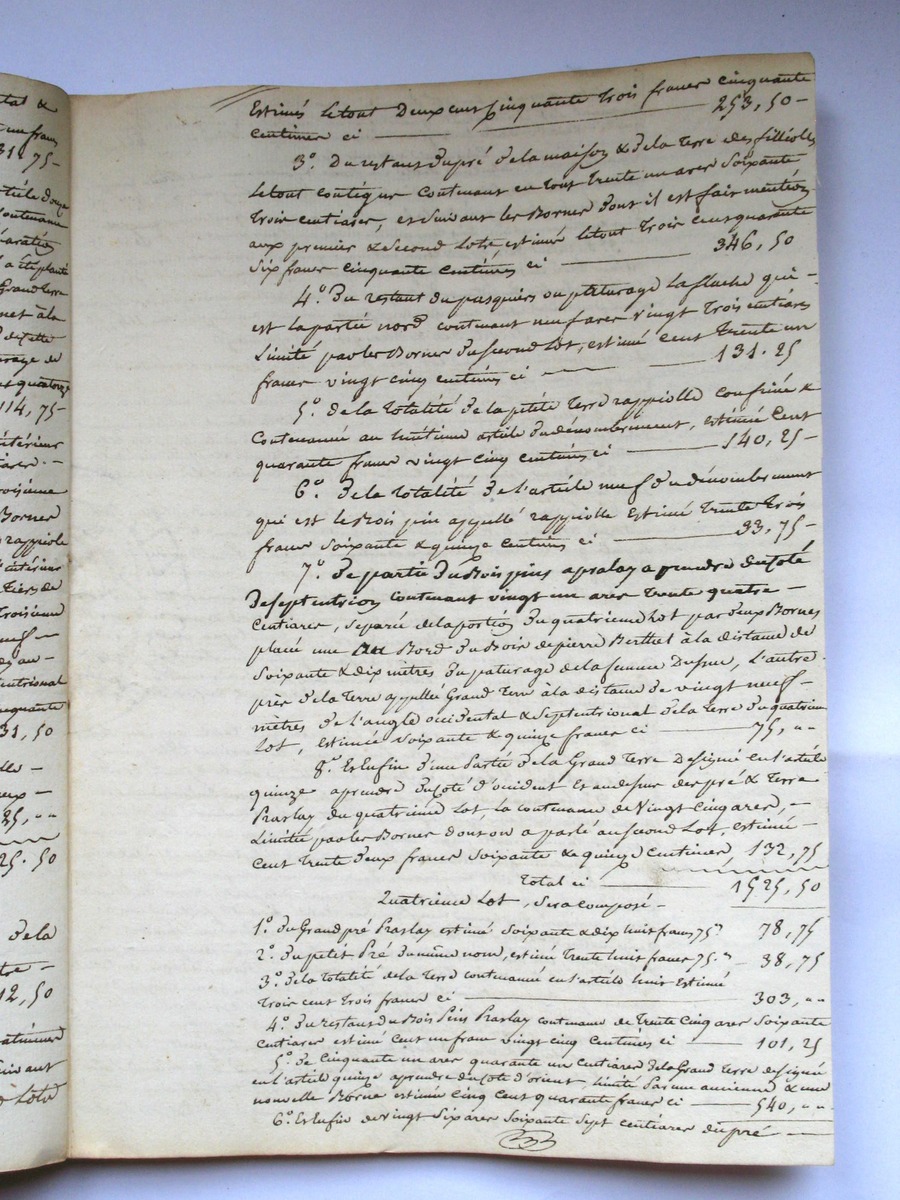 tat &
un franc
31, 75-
article douze
contenance
Grand terre
net à la
114, 75-
intérieur
troisième
Borner
rappiolle
intérieur
tiers de
troisième
neuf -
cinquante
31, 50
25, "
25. 50
de la
12, 50
suivant
Lots
Estimés le tout Deux cens cinquante trois francs cinquante
centimes ci 253, 50-
3°. Du restans du pré de la maison & de la terre des filléoles
le tout contigue contenant en tout trente un ares soixante
trois centiares, et suivant les Bornes dont il est fait mention
aux premier & second Lots, estimé le tout trois cens quarante
six francs cinquante centimes ci 346, 50
4°. Du restant du pasquiers ou pâturage la flache qui -
est la partie nord contenant neuf ares vingt trois centiares
Limité par les Bornes du second Lot, estimé cent trente un
francs vingt cinq centimes ci 131. 25
5°. de la totalité de la petite terre rappiolle confinée &
contenancé au huitième article du dénombrement, estimée Cent
quarante francs vingt cinq centimes ci 140, 25-
6°. de la totalité de l'article neuf du dénombrement
qui est le Bois pin appellé rappiolle Estimé trente trois
francs soixante & quinze centimes ci 33, 75-
7°. de partie du Bois pins a pralay a prendre du coté
de septentrion contenant vingt un ares trente quatre -
centiares, séparée de la portion du quatrieme Lot par deux Bornes
placé une au Bord du Bois de pierre Berthet à la distance de
soixante & dix mètres du paturage de la femme , L'autre
près de la terre appellée Grand terre à la distance de vingt neuf -
mètres de l'angle occidental & septentrional de la terre du quatrieme
Lot, estimée soixante & quinze francs ci 75, "
8°. Et Enfin d'une Partie de la Grand terre Désigné en l'article
quinze a prendre du coté d'occident et au dessus des pré & terre
Praslay du quatrième Lot, la contenance de Vingt Cinq ares, -
Limitée par les Bornes dont on a parlé au second Lot, estimée
Cent trente deux francs soixante & quinze centimes, 132, 75
Total ci 1525, 50
Quatrieme Lot, sera composé -
1°. du Grand pré Praslay estimé soixante & dix huit francs 75 c 78, 75
2°. du petit Pré du même nom, estimé trente huit francs 75 c 38, 75
3°. de la totalité de la terre contenancé en l'article huit Estimé
trois cent trois francs ci 303, "
4°. du restans du Bois Pins Praslay contenance de trente cinq ares soixante
centiares estimé cent un francs vingt cinq centimes ci 101, 25
5°. de cinquante un ares quarante un centiares de la Grand terre désignée
en l'article quinze a prendre du coté d'orient, limité par une ancienne & une
nouvelle Borne estimée cinq cent quarante francs ci 540, "
6°. Et Enfin de vingt six ares soixante sept centiares du pré